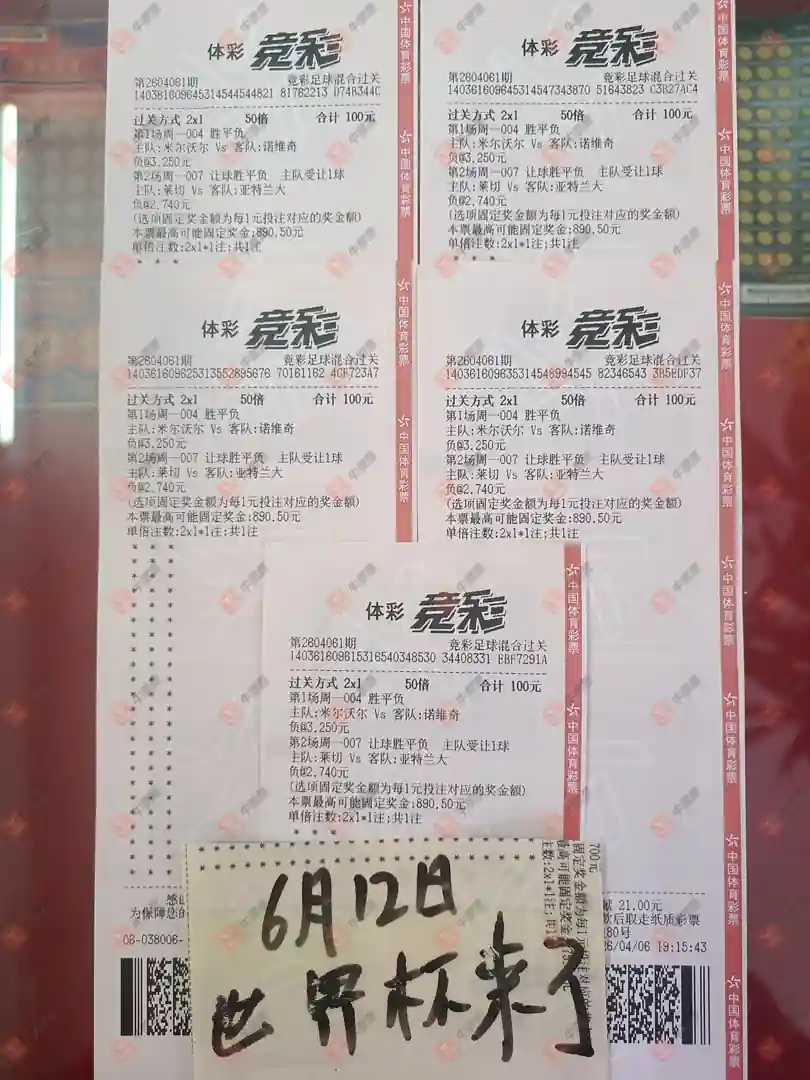 体彩 竞彩
第2604061期 竞彩足球混合过关
140361609645314544544821 81762213 D74B344C
过关方式 2x1 50倍 合计 100元
第1场周一004 胜平负
主队:米尔沃尔 Vs 客队:诺维奇
负@3.250元
第2场周一007 让球胜平负 主队受让1球
主队:莱切 Vs 客队:亚特兰大
负@2.740元
(选项固定奖金额为每1元投注对应的奖金额)
本票最高可能固定奖金:890.50元
单倍注数:2x1*1注;共1注
体彩 竞彩
第2604061期 竞彩足球混合过关
140361609645314547343870 51643823 C3B27AC4
过关方式 2x1 50倍 合计 100元
第1场周一004 胜平负
主队:米尔沃尔 Vs 客队:诺维奇
负@3.250元
第2场周一007 让球胜平负 主队受让1球
主队:莱切 Vs 客队:亚特兰大
负@2.740元
(选项固定奖金额为每1元投注对应的奖金额)
本票最高可能固定奖金:890.50元
单倍注数:2x1*1注;共1注
体彩 竞彩
第2604061期 竞彩足球混合过关
140361609625313552895676 70161162 4CF723A7
过关方式 2x1 50倍 合计 100元
第1场周一004 胜平负
主队:米尔沃尔 Vs 客队:诺维奇
负@3.250元
第2场周一007 让球胜平负 主队受让1球
主队:莱切 Vs 客队:亚特兰大
负@2.740元
(选项固定奖金额为每1元投注对应的奖金额)
本票最高可能固定奖金:890.50元
单倍注数:2x1*1注;共1注
体彩 竞彩
第2604061期 竞彩足球混合过关
140361609635314548994545 82346543 3B5EDF37
过关方式 2x1 50倍 合计 100元
第1场周一004 胜平负
主队:米尔沃尔 Vs 客队:诺维奇
负@3.250元
第2场周一007 让球胜平负 主队受让1球
主队:莱切 Vs 客队:亚特兰大
负@2.740元
(选项固定奖金额为每1元投注对应的奖金额)
本票最高可能固定奖金:890.50元
单倍注数:2x1*1注;共1注
体彩 竞彩
第2604061期 竞彩足球混合过关
140361609615316540348530 34408331 EBF7291A
过关方式 2x1 50倍 合计 100元
第1场周一004 胜平负
主队:米尔沃尔 Vs 客队:诺维奇
负@3.250元
第2场周一007 让球胜平负 主队受让1球
主队:莱切 Vs 客队:亚特兰大
负@2.740元
(选项固定奖金额为每1元投注对应的奖金额)
本票最高可能固定奖金:890.50元
单倍注数:2x1*1注;共1注
中国体育彩票
中国体育彩票
中国体育彩票
中国体育彩票
中国体育彩票
中国体育彩票
中国体育彩票
中国体育彩票
中国体育彩票
中国体育彩票
中国体育彩票
中国体育彩票
中国体育彩票
中国体育彩票
为保障您的
08-038006-
21.00元
后取走纸质彩票
80号
26/04/06 19:15:43
700元
固定奖金额为每1元
高可能固定奖金
注数:2x1*1注;共1
6月12日
世界杯来了